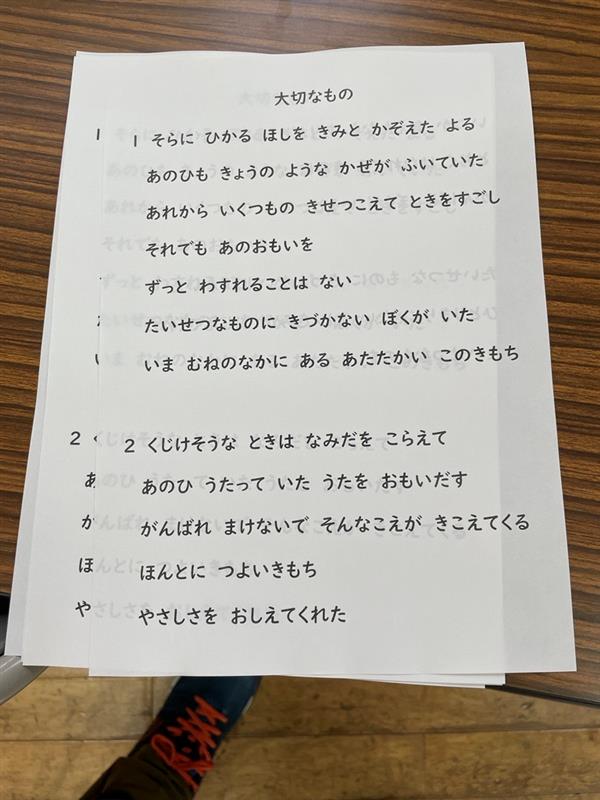 大切なもの
1 そらに ひかる ほしを きみと かぞえた よる
あのひも きょうの ような かぜが ふいていた
あれから いくつもの きせつこえて ときをすごし
それでも あのおもいを
ずっと わすれることは ない
たいせつなものに きづかない ぼくが いた
いま むねのなかに ある あたたかい このきもち
2 くじけそうな ときは なみだを こらえて
あのひ うたって いた うたを おもいだす
がんばれ まけないで そんなこえが きこえてくる
ほんとに つよいきもち
やさしさを おしえてくれた